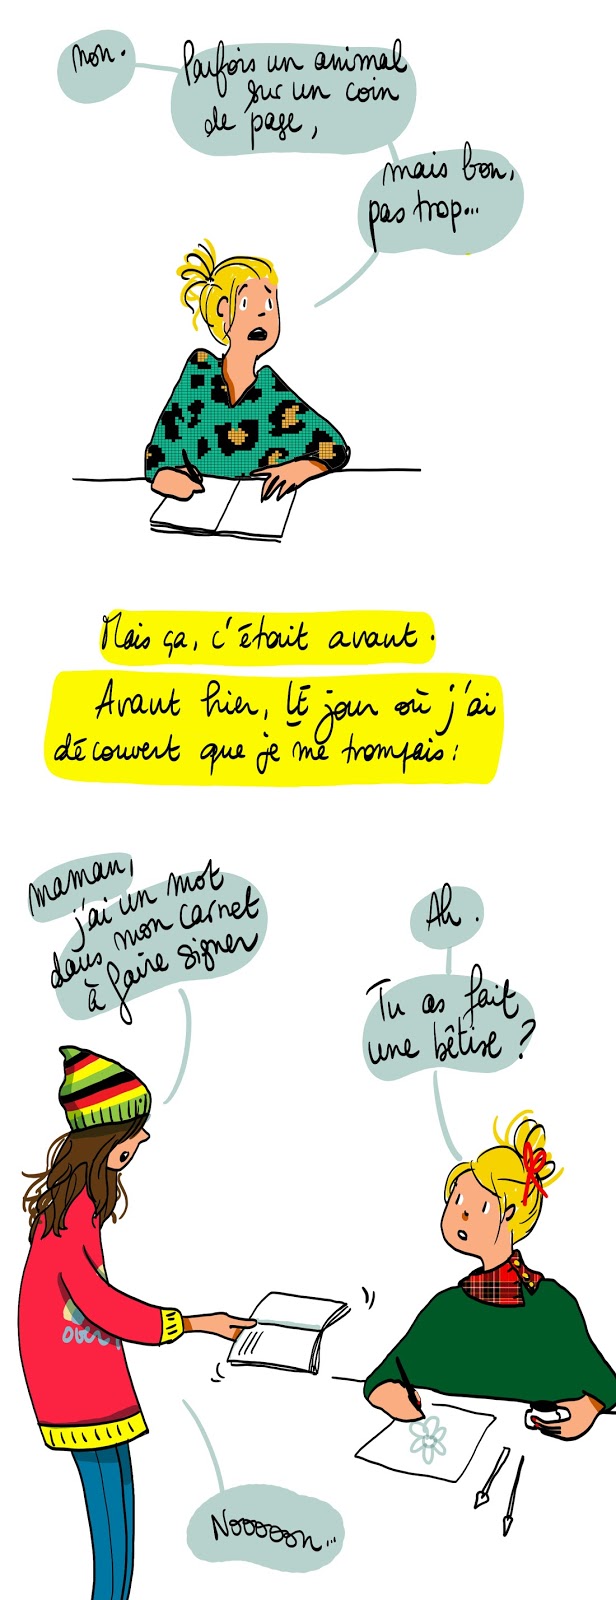 non.
Parfois un animal
sur un coin
de page,
mais bon,
pas trop...
Mais ça, c'était avant.
Avant hier, LE jour où j'ai
découvert que je me trompais :
maman,
j'ai un mot
dans mon carnet
à faire signer
Ah.
Tu as fait
une bêtise ?
Nooooon...